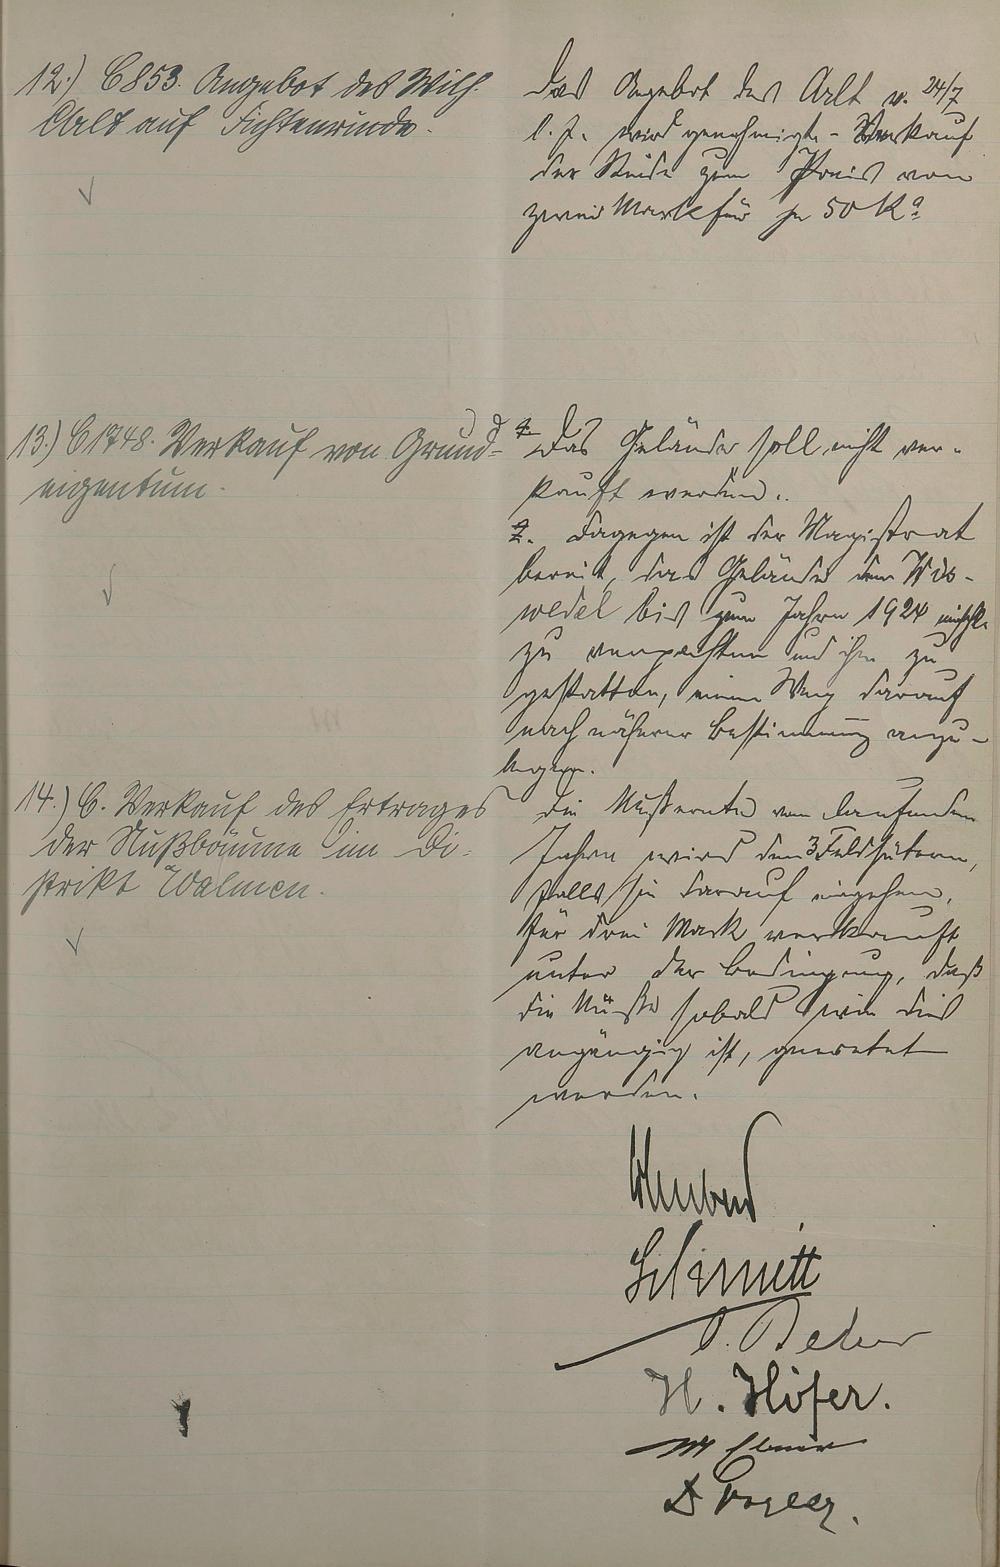 12.) C 853. Angebot des Wilh.
Alt auf Fichtenrinde.
Das Angebot des Alt v. 24/7
l. J. wird genehmigt - Verkauf
der Rinde zum Preis von
zwei Mark für je 50 Kº
13.) C 1748. Verkauf von Grund-
eigentum.
1. Das Gelände soll nicht ver-
kauft werden.
2. Dagegen ist der Magistrat
bereit, das Gelände dem
bis zum Jahre 1924
zu verpachten und ihm zu
gestatten, einen Weg darauf
nach näherer Bestimmung anzu-
legen.
14.) C. Verkauf des Ertrages
der Nußbäume im Di-
strikt Walmen.
Die Nußernte vom laufenden
Jahre wird den 3 Feldhütern,
falls sie darauf eingehen,
für drei Mark verkauft
unter der Bedingung, daß
die Nüsse sobald wie dies
angängig ist, geerntet
werden.
Schmitt
H. Höfer.